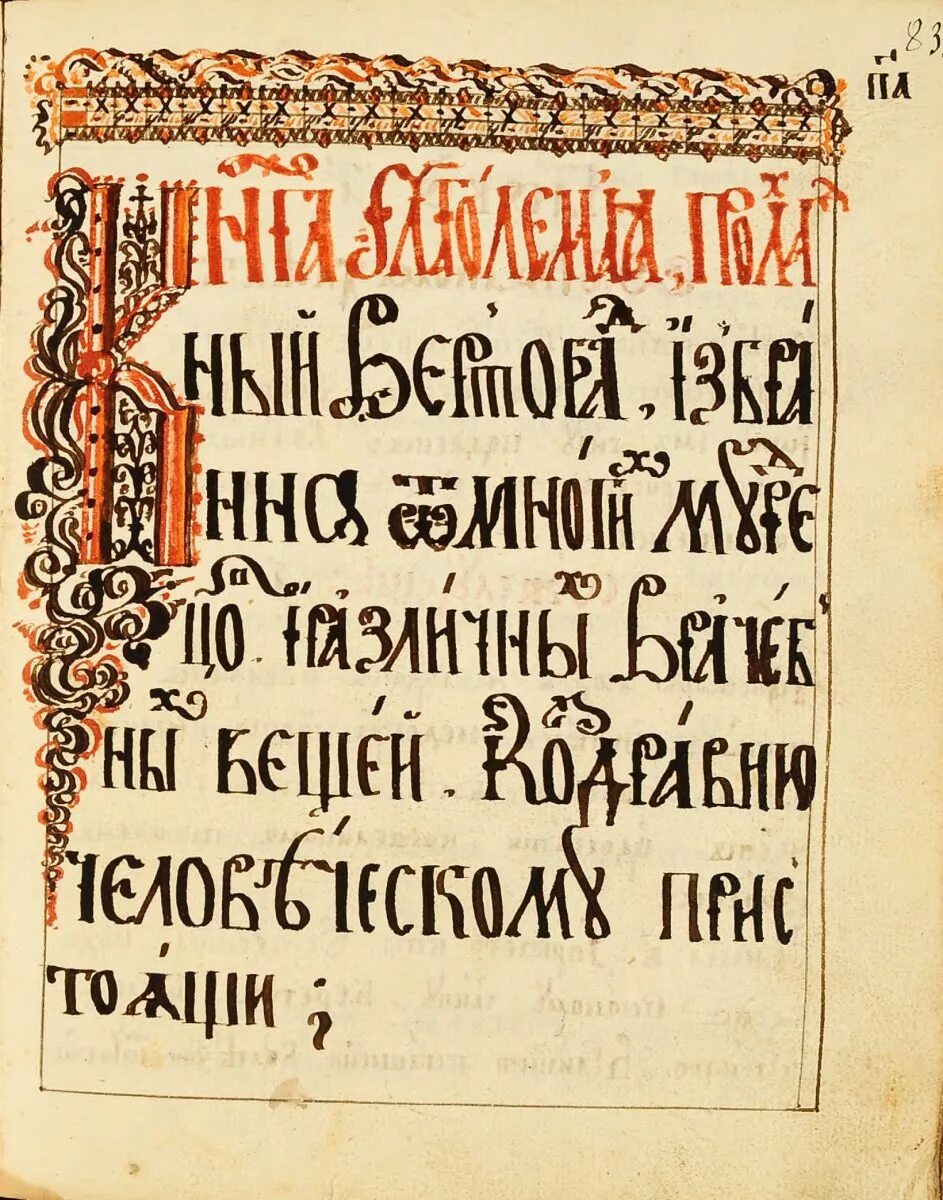 83
па
Книга глаголемаѧ, прохлад
ный вертоград, їзбра
ннсѧ ѿ многїих мудре
цов. ї различных врачеб
ных вещей. Ко здравию
человѣческому прис
тоѧщи ;